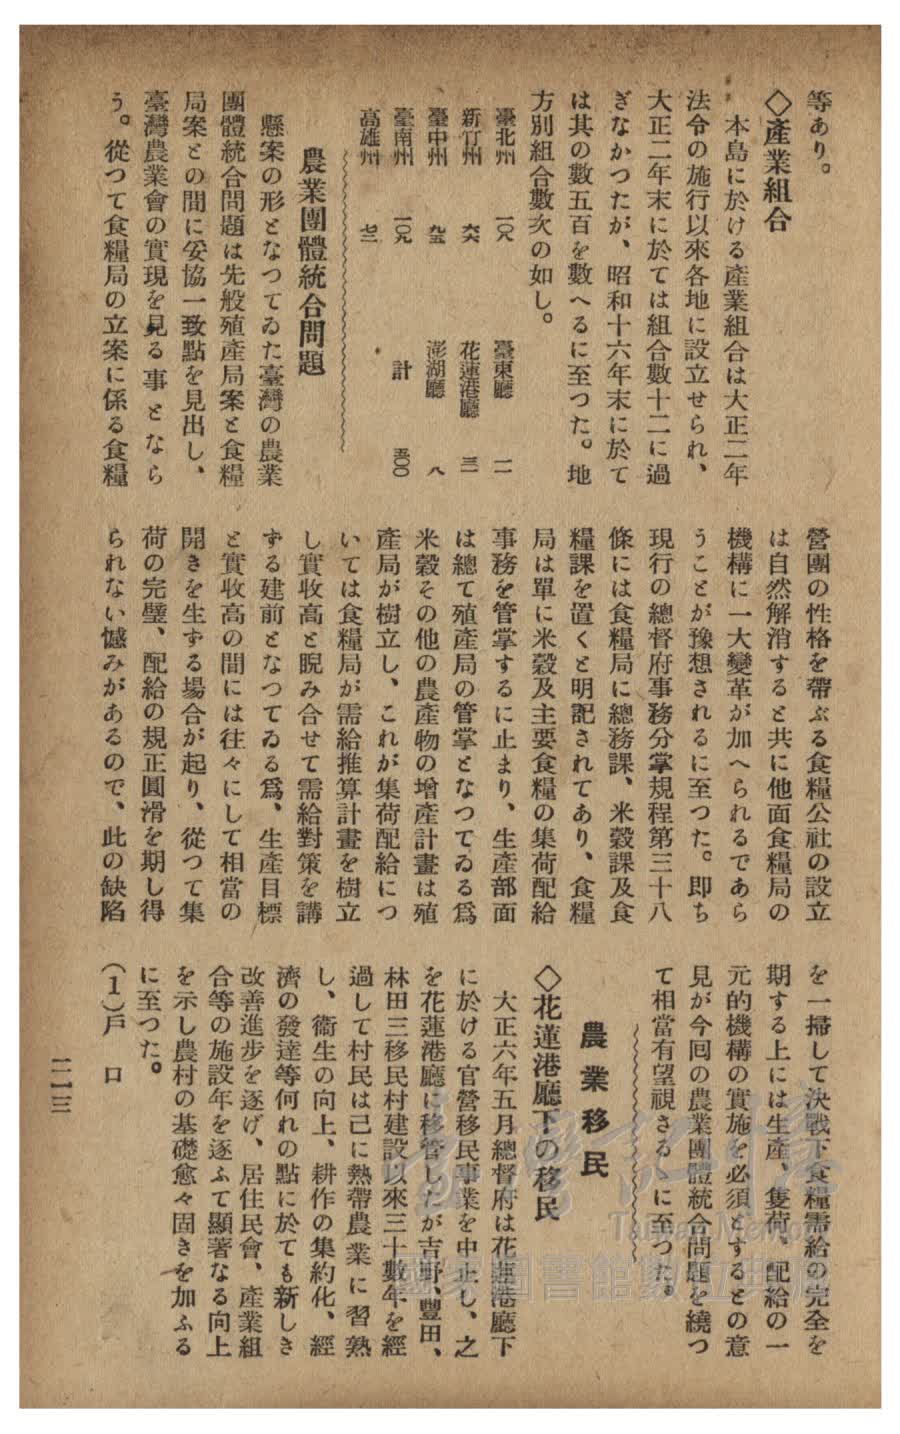 等あり。
◇產業組合
本島に於ける產業組合は大正二年
法令の施行以來各地に設立せられ、
大正二年末に於ては組合數十二に過
ぎなかつたが、昭和十六年末に於て
は其の數五百を數へるに至つた。地
方別組合數次の如し。
臺北州 一〇八 臺東廳 一一
新竹州 六六 花蓮港廳 三一
臺中州 九五 澎湖廳 八
臺南州 一〇九 計 五〇〇
高雄州 七二
農業團體統合問題
懸案の形となつてゐた臺灣の農業
團體統合問題は先般殖產局案と食糧
局案との間に妥協一致點を見出し、
臺灣農業會の實現を見る事となら
う。從つて食糧局の立案に係る食糧
營團の性格を帶ぶる食糧公社の設立
は自然解消すると共に他面食糧局の
機構に一大變革が加へられるであら
うことが豫想されるに至つた。卽ち
現行の總督府事務分掌規程第三十八
條には食糧局に總務課、米穀課及食
糧課を置くと明記されてあり、食糧
局は單に米穀及主要食糧の集荷配給
事務を管掌するに止まり、生產部面
は總て殖產局の管掌となつてゐる爲
米穀その他の農產物の增產計畫は殖
產局が樹立し、これが集荷配給につ
いては食糧局が需給推算計畫を樹立
し實收高と睨み合せて需給對策を講
ずる建前となつてゐる爲、生產目標
と實收高の間には往々にして相當の
開きを生ずる場合が起り、從つて集
荷の完璧、配給の規正圓滑を期し得
られない憾みがあるので、此の缺陷
を一掃して決戰下食糧需給の完全を
期する上には生產、隻荷、配給の一
元的機構の實施を必須とするとの意
見が今回の農業團體統合問題を繞つ
て相當有望視さるゝに至つた。
農業移民
◇花蓮港廳下の移民
大正六年五月總督府は花蓮港廳下
に於ける官營移民事業を中止し、之
を花蓮港廳に移管したが吉野、豐田、
林田三移民村建設以來三十數年を經
過して村民は已に熱帶農業に習熟
し、衞生の向上、耕作の集約化、經
濟の發達等何れの點に於ても新しき
改善進步を逐げ、居住民會、產業組
合等の施設年を逐ふて顯著なる向上
を示し農村の基礎愈々固きを加ふる
に至つた。
(1)戶 口
二一三
臺灣記憶
Taiwan Memory
國家圖書館數位典藏